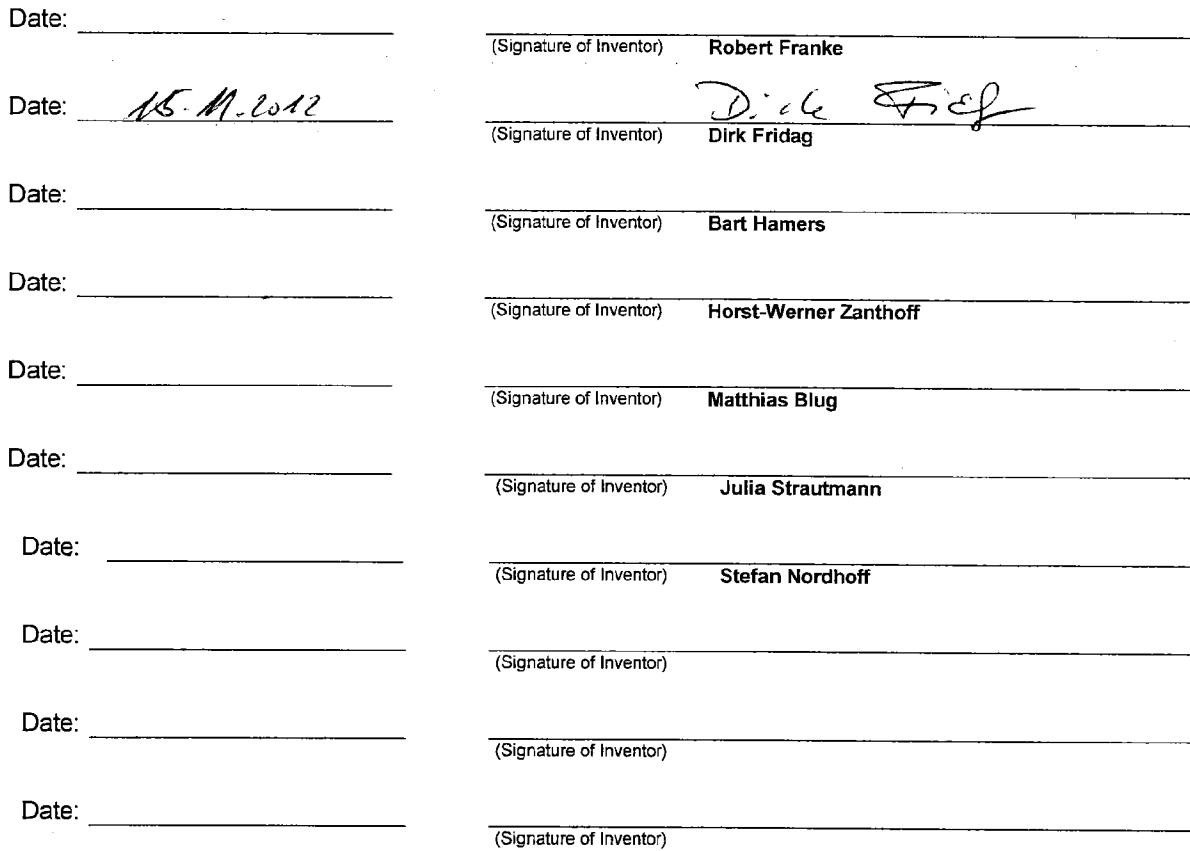 Date:
(Signature of Inventor) Robert Franke
Date: 15.11.2012 Dirk
(Signature of Inventor) Dirk Fridag
Date:
(Signature of Inventor) Bart Hamers
Date:
(Signature of Inventor) Horst-Werner Zanthoff
Date:
(Signature of Inventor) Matthias Blug
Date:
(Signature of Inventor) Julia Strautmann
Date:
(Signature of Inventor) Stefan Nordhoff
Date:
(Signature of Inventor)
Date:
(Signature of Inventor)
Date:
(Signature of Inventor)